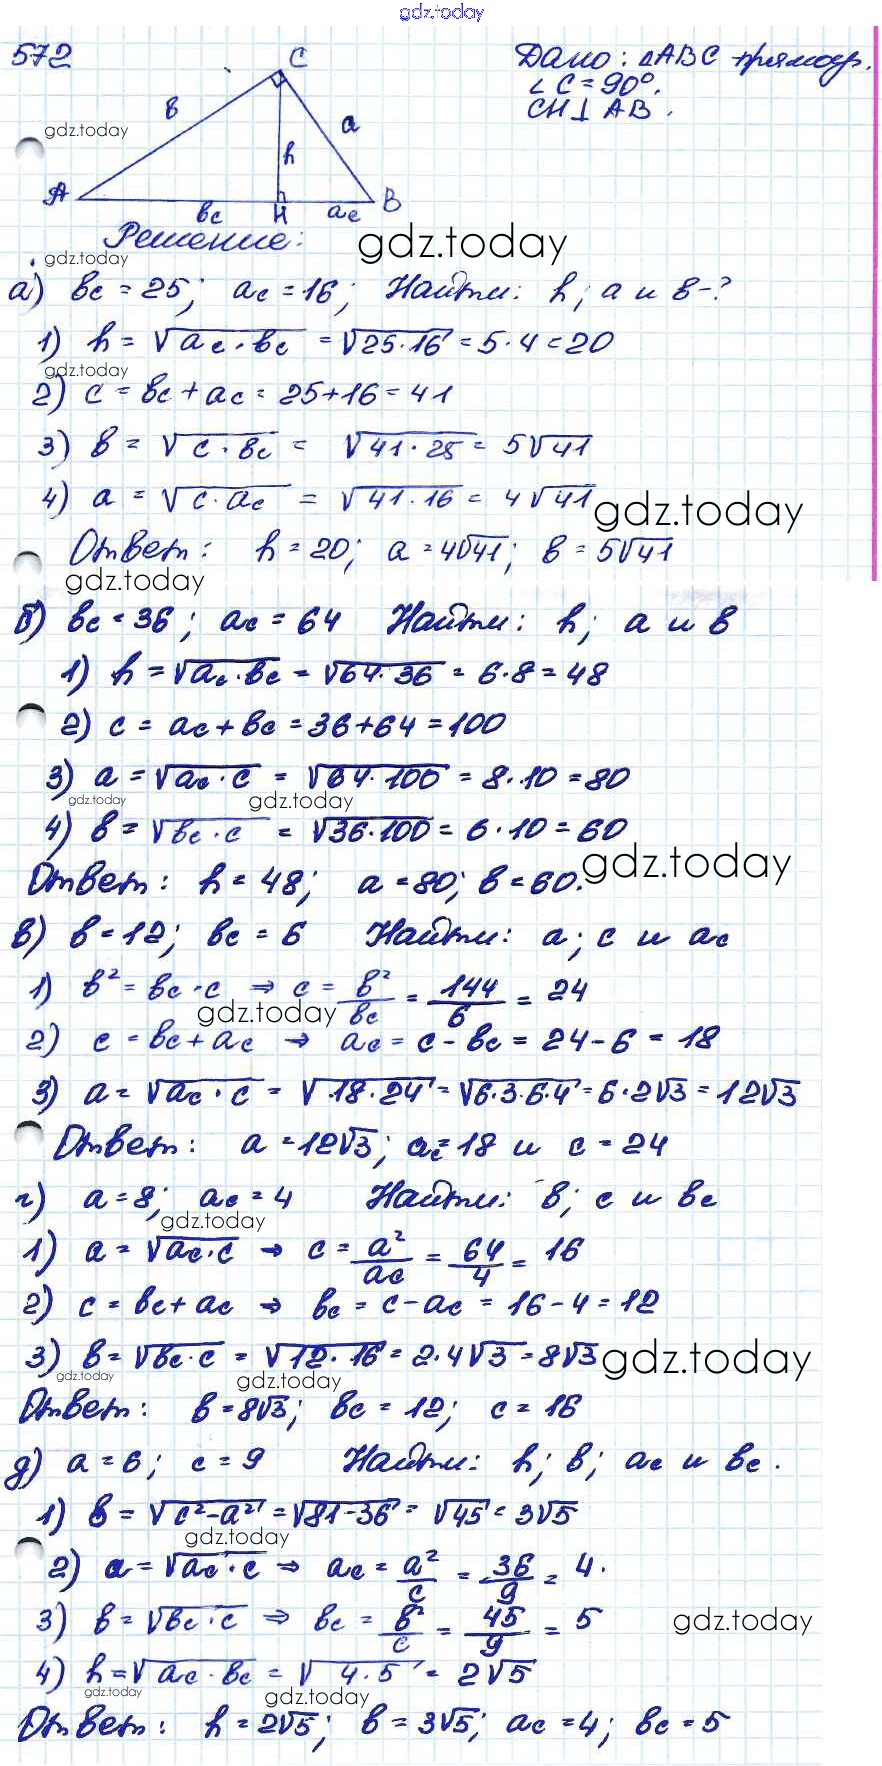 gdz.today
572
C
Дано: ΔABC прямоуг.
∠C=90°.
CH⊥AB.
в
a
gdz.today
h
A
B
вc
H
ac
Решение:
gdz.today
gdz.today
а) вc = 25; ac = 16; Найти: h; a и в-?
1) h = √ac·вc = √25·16 = 5·4 = 20
gdz.today
2) c = вc + ac = 25+16 = 41
3) в = √c·вc = √41·25 = 5√41
4) a = √c·ac = √41·16 = 4√41
gdz.today
Ответ: h = 20; a = 4√41; в = 5√41
gdz.today
б) вc = 36; ac = 64 Найти: h; a и в
1) h = √ac·вc = √64·36 = 6·8 = 48
2) c = ac + вc = 36+64 = 100
3) a = √ac·c = √64·100 = 8·10 = 80
gdz.today
gdz.today
4) в = √вc·c = √36·100 = 6·10 = 60
gdz.today
Ответ: h = 48; a = 80; в = 60.
в) в = 12; вc = 6 Найти: a; c и ac
1) в² = вc·c ⇒ c = в²/вc = 144/6 = 24
gdz.today
2) c = вc + ac ⇒ ac = c - вc = 24-6 = 18
3) a = √ac·c = √18·24 = √6·3·6·4 = 6·2√3 = 12√3
Ответ: a = 12√3; ac = 18 и c = 24
г) a = 8; ac = 4 Найти: в; c и вc
gdz.today
1) a = √ac·c ⇒ c = a²/ac = 64/4 = 16
2) c = вc + ac ⇒ вc = c - ac = 16-4 = 12
3) в = √вc·c = √12·16 = 2·4√3 = 8√3
gdz.today
gdz.today
gdz.today
Ответ: в = 8√3; вc = 12; c = 16
д) a = 6; c = 9 Найти: h; в; ac и вc.
1) в = √c²-a² = √81-36 = √45 = 3√5
gdz.today
2) a = √ac·c ⇒ ac = a²/c = 36/9 = 4.
3) в = √вc·c ⇒ вc = в²/c = 45/9 = 5
gdz.today
4) h = √ac·вc = √4·5 = 2√5
gdz.today
gdz.today
Ответ: h = 2√5; в = 3√5; ac = 4; вc = 5